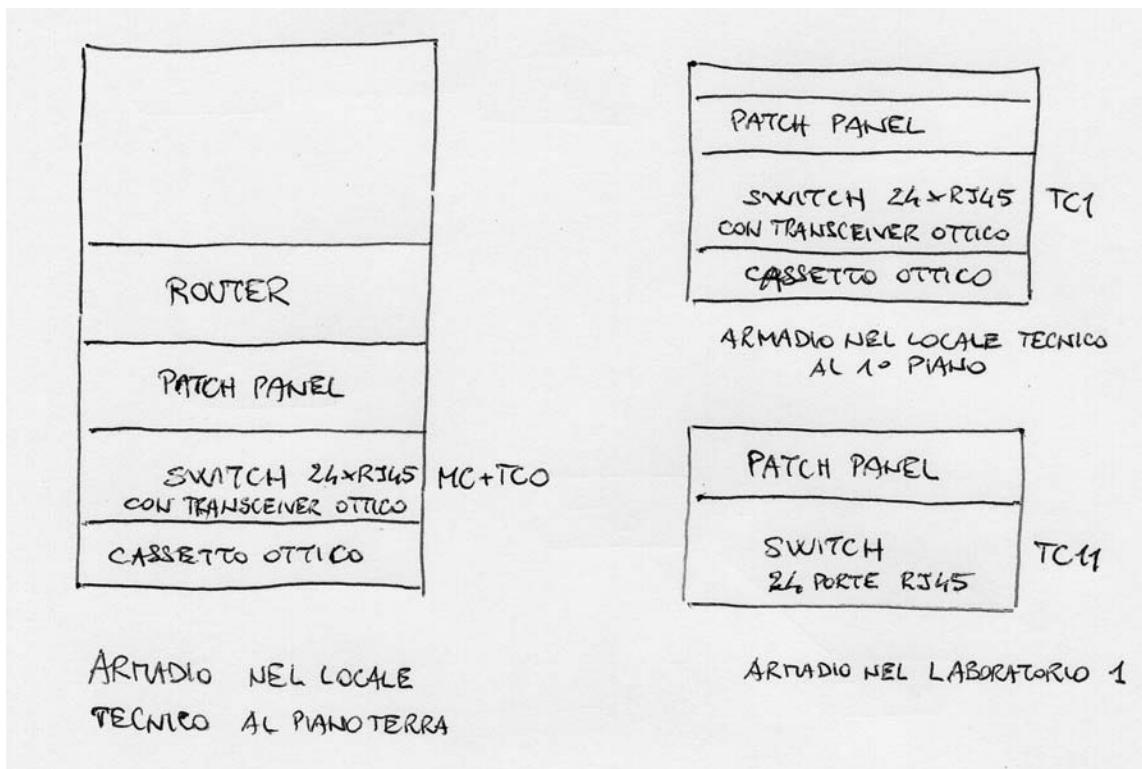 ROUTER
PATCH PANEL
SWITCH 24xRJ45
CON TRANSCEIVER OTTICO
MC+TCO
CASSETTO OTTICO
ARMADIO NEL LOCALE
TECNICO AL PIANO TERRA
PATCH PANEL
SWITCH 24xRJ45
CON TRANSCEIVER OTTICO
TC1
CASSETTO OTTICO
ARMADIO NEL LOCALE TECNICO
AL 1° PIANO
PATCH PANEL
SWITCH
24 PORTE RJ45
TC11
ARMADIO NEL LABORATORIO 1